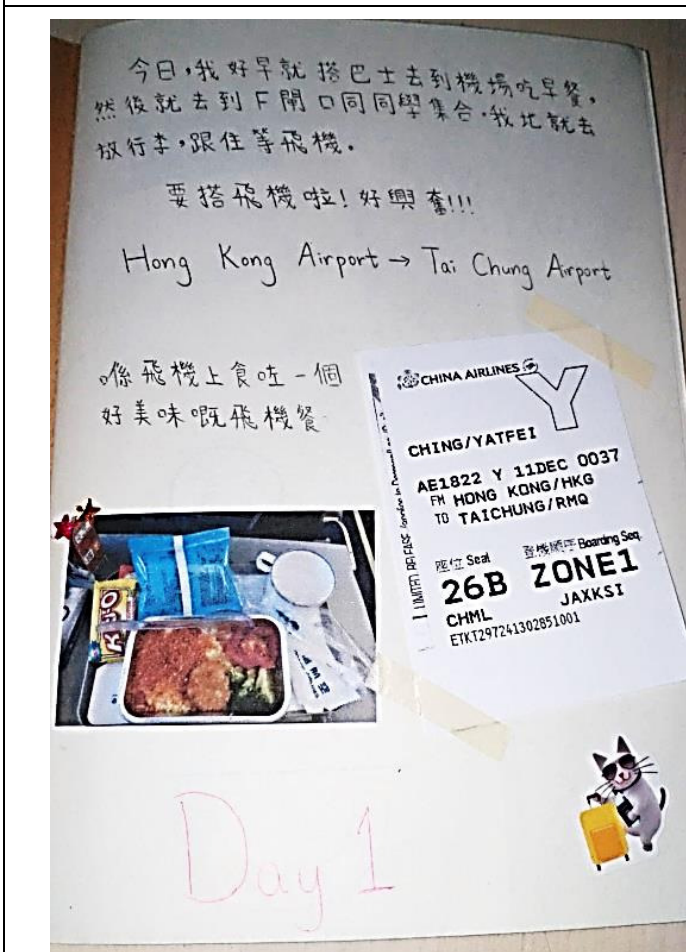 今日，我好早就搭巴士去到機場吃早餐，
然後就去到F閘口同同學集合．我地就去
放行李，跟住等飛機．
要搭飛機啦！好興奮!!!
Hong Kong Airport → Tai Chung Airport
喺飛機上食咗一個
好美味嘅飛機餐
CHINA AIRLINES
Y
CHING/YATFEI
AE1822 Y 11DEC 0037
FM HONG KONG/HKG
TO TAICHUNG/RMQ
座位 Seat 登機順序 Boarding Seq.
26B ZONE1
CHML JAXKSI
ETKT297241302851001
Day 1